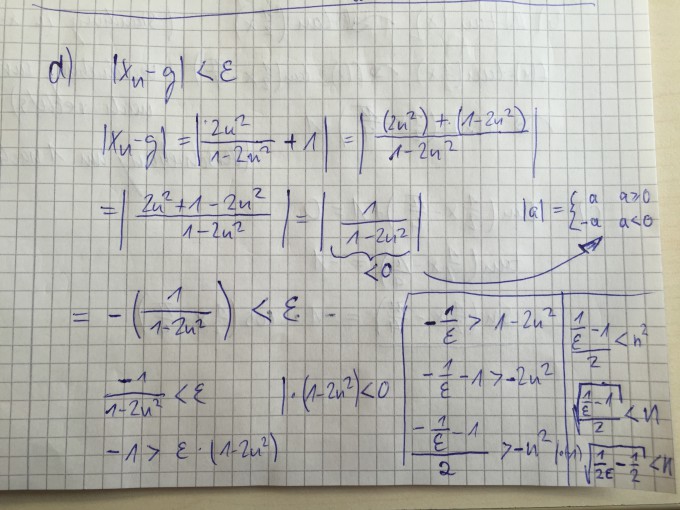 d) |xₙ-g| < ε
|xₙ-g| = |2n²/(1-2n²) + 1| = |((2n²) + (1-2n²))/(1-2n²)|
= |(2n²+1-2n²)/(1-2n²)| = |1/(1-2n²)|
<0
|a| = { a a≥0
-a a<0
= -(1/(1-2n²)) < ε
-1/(1-2n²) < ε |·(1-2n²)<0
-1 > ε·(1-2n²)
-1/ε > 1-2n²
-1/ε -1 > -2n²
(-1/ε -1)/2 > -n² |(·-1)
(1/ε -1)/2 < n²
√((1/ε -1)/2) < n
√(1/2ε - 1/2) < n